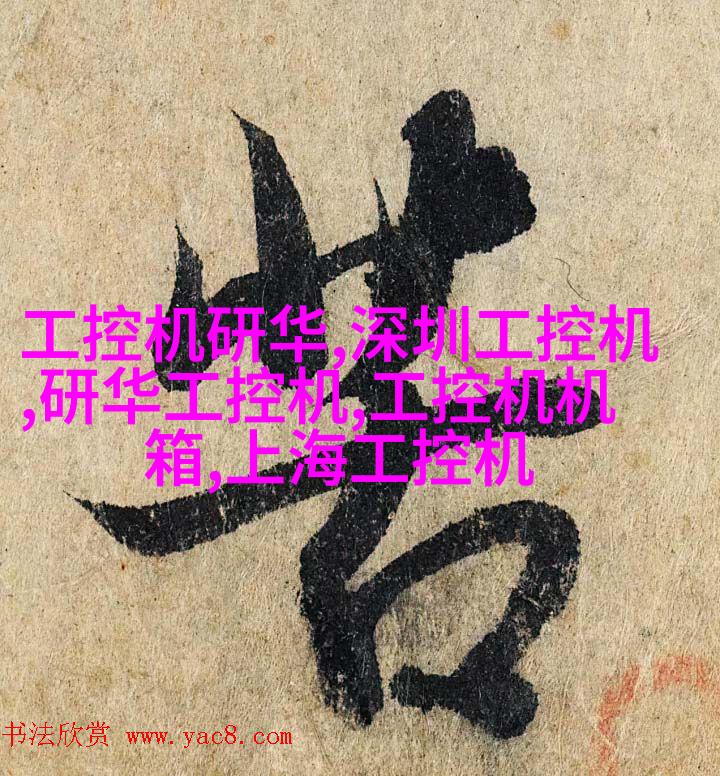 苦
工控机研华,深圳工控机
,研华工控机,工控机机
箱,上海工控机
书法欣赏 www.yac8.com